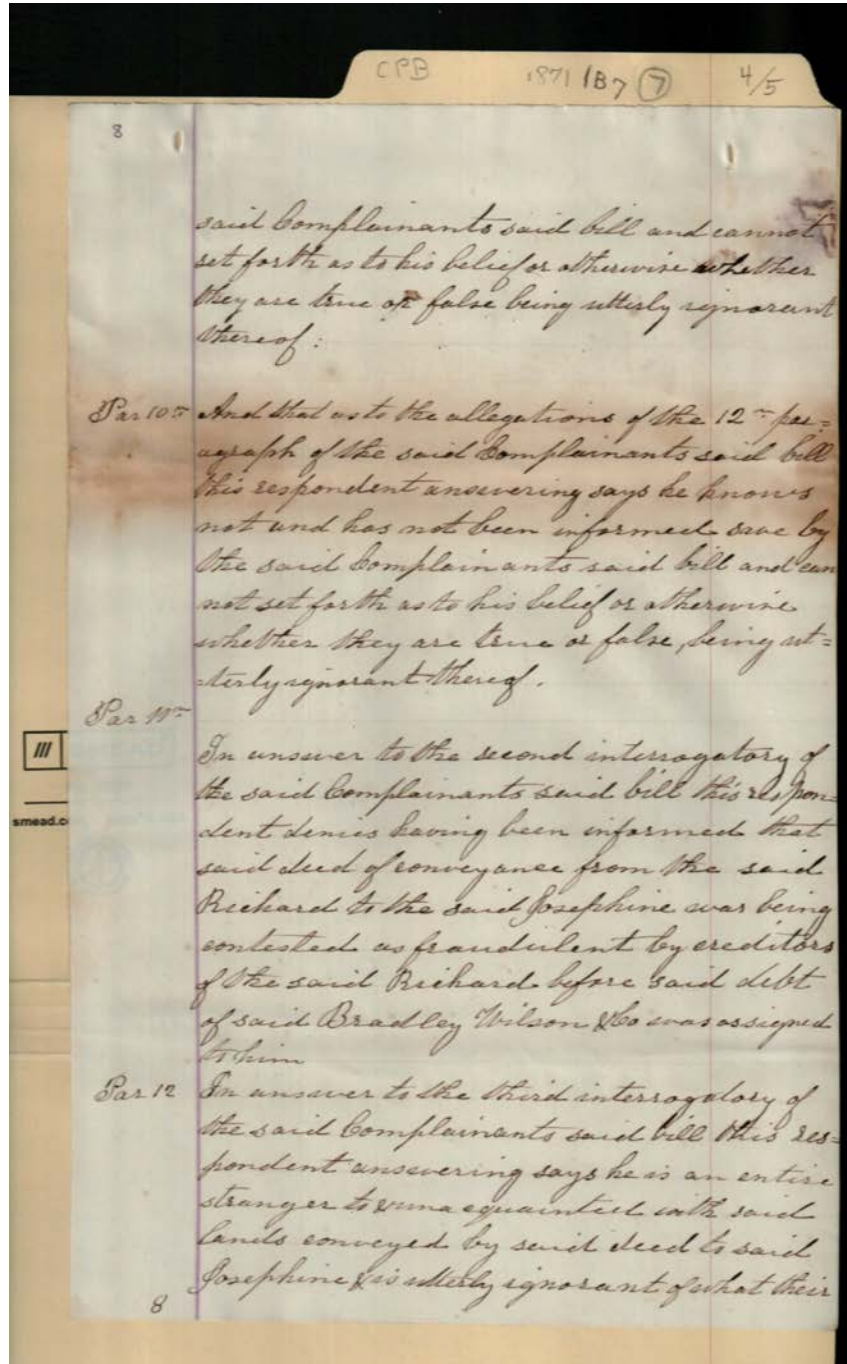 CPB 1871 1B7 7 4/5
8
said Complainants said bill and cannot
set forth as to his belief or otherwise whether
they are true or false being utterly ignorant
thereof:
Par 10th And that as to the allegations of the 12th par=
agraph of the said Complainants said bill
this respondent answering says he knows
not and has not been informed save by
the said Complainants said bill and can
not set forth as to his belief or otherwise
whether they are true or false, being ut=
=terly ignorant thereof.
Par 11th
In answer to the second interrogatory of
the said Complainants said bill this respon=
dent denies having been informed that
said deed of conveyance from the said
Richard to the said Josephine was being
contested as fraudulent by creditors
of the said Richard before said debt
of said Bradley Wilson & Co was assigned
to him
Par 12 In answer to the third interrogatory of
the said Complainants said bill this res=
pondent answering says he is an entire
stranger to & unacquainted with said
lands conveyed by said deed to said
Josephine & is utterly ignorant of what their
8
smead.co